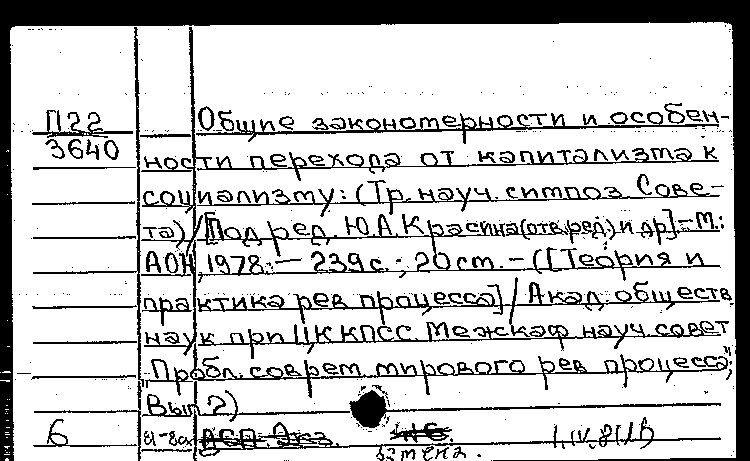 П22
3640
Общие закономерности и особен-
ности перехода от капитализма к
социализму: (Тр. науч. симпоз. Сове-
та) / [Под ред. Ю.А. Красина (отв. ред.) и др.] - М.:
АОН, 1978. - 239 с.; 20 см. - ([Теория и
практика рев. процесса] / Акад. обществ.
наук при ЦК КПСС. Межкаф. науч. совет
"Пробл. соврем. мирового рев. процесса";
Вып. 2)
6